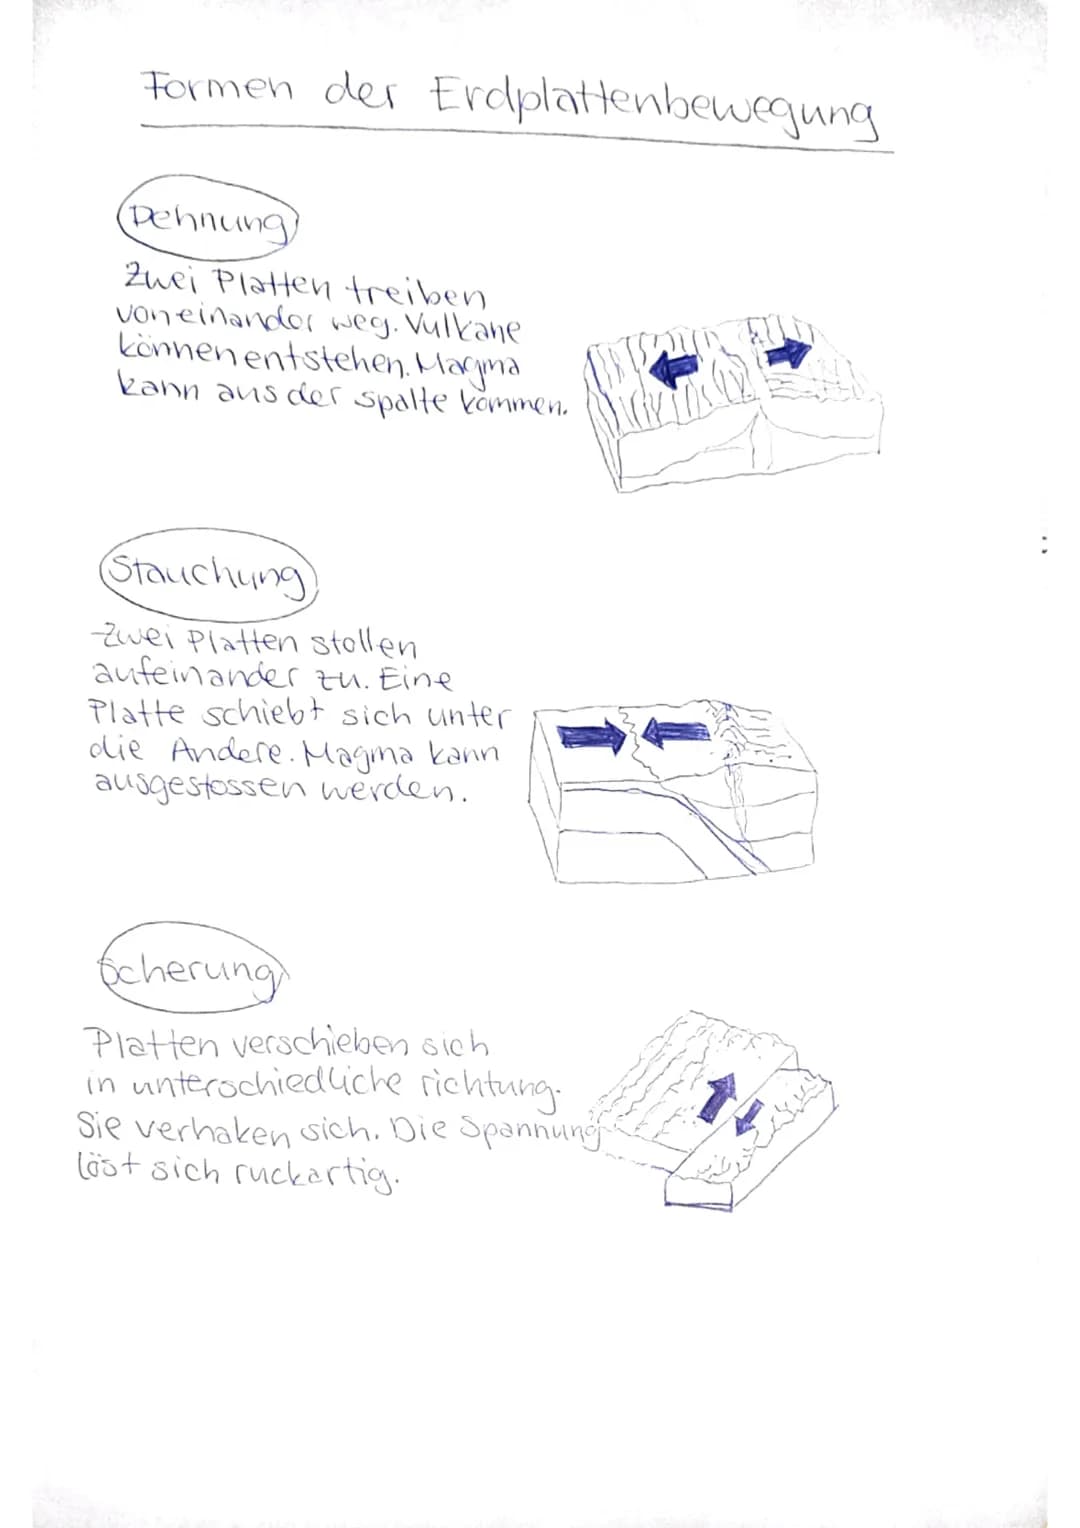 Formen der Erdplattenbewegung
Dehnung
Zwei Platten treiben
voneinander weg. Vulkane
können entstehen. Magma
kann aus der spalte kommen.
Stauchung
Zwei Platten stollen
aufeinander zu. Eine
Platte schiebt sich unter
die Andere. Magma kann
ausgestossen werden.
Scherung
Platten verschieben sich
in unterschiedliche richtung.
Sie verhaken sich. Die Spannung
löst sich ruckartig.